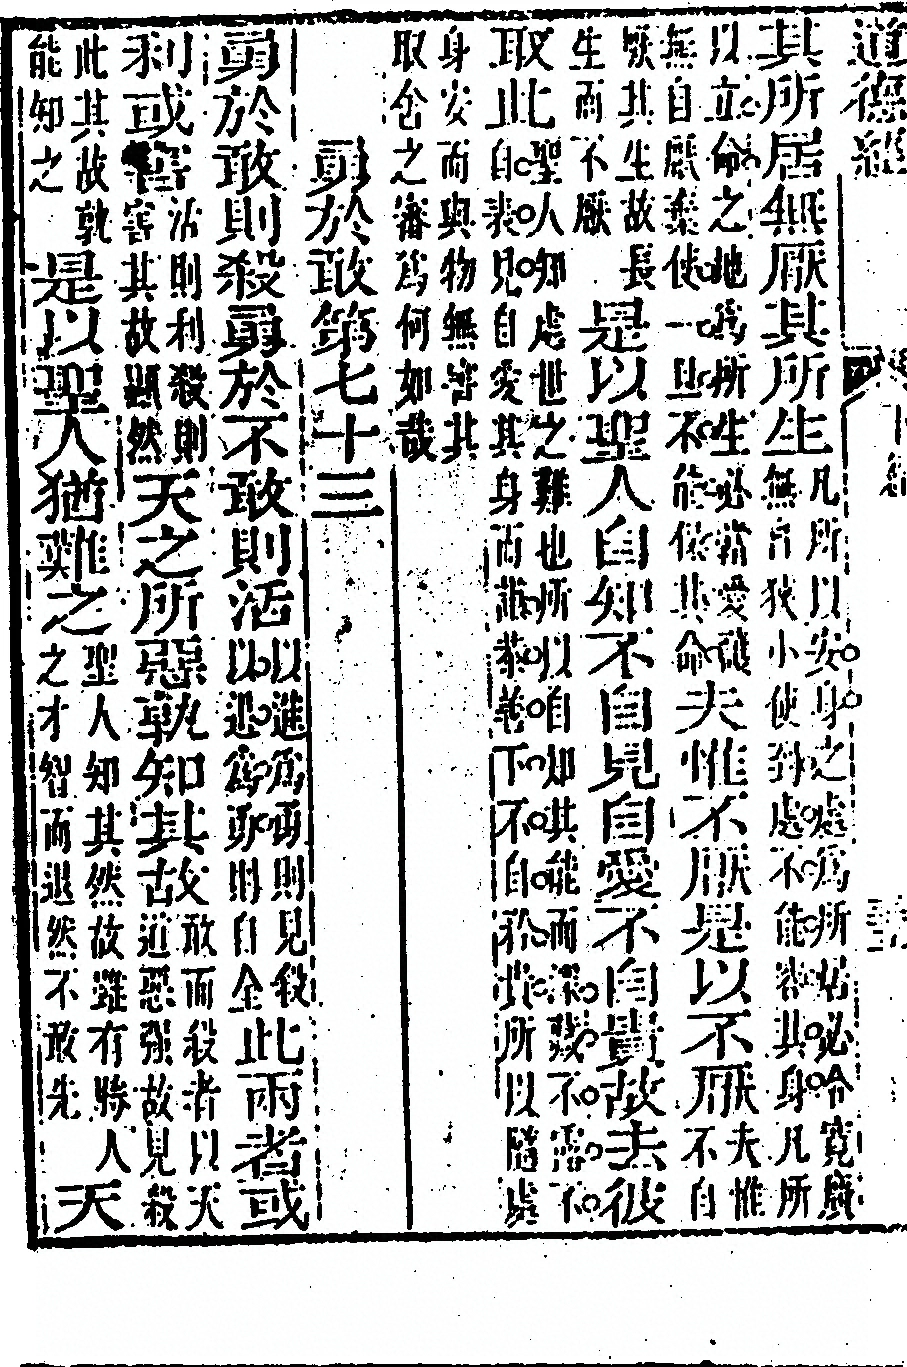 道德經
其所居無厭其所生凡所以安身之處爲所居必令寬廣無音狹小使到處不能容其身凡所
以立命之地爲所生必當愛護無自厭棄使一旦不能保其命夫惟不厭是以不厭夫惟不自
厭其生故長生而不厭是以聖人自知不自見自愛不自貴故去彼
取此聖人知處世之難也所以自知其能而深藏不露不自表見自愛其身而謙恭卑下不自矜貴所以隨處
身安而與物無害其取舍之審爲何如哉
勇於敢第七十三
勇於敢則殺勇於不敢則活以進爲勇則見殺以退爲勇則自全此兩者或
利或害活則利殺則害其故顯然天之所惡孰知其故敢而殺者以天道惡强故見殺
此其故孰能知之是以聖人猶難之聖人知其然故雖有勝人之才智而退然不敢先天